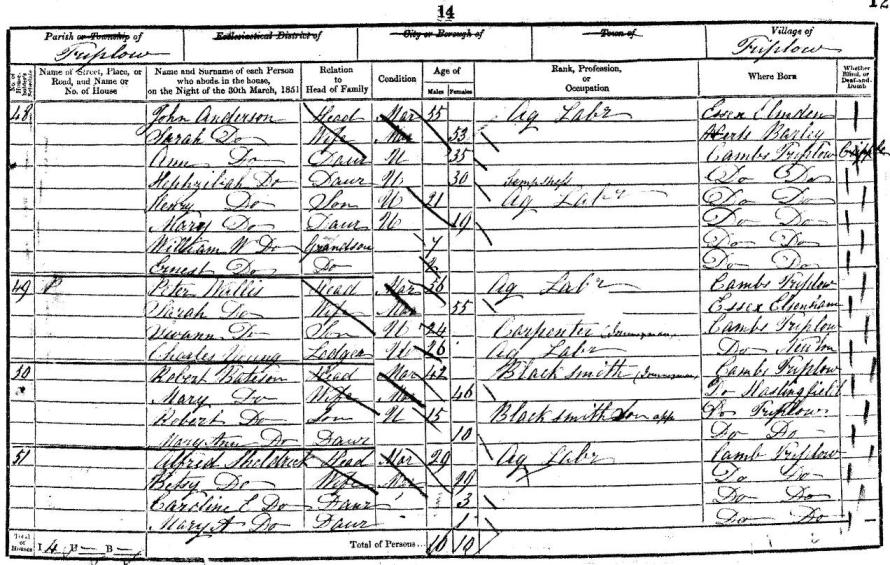 14
12
Parish or Township of
Triplow
Ecclesiastical District of
City or Borough of
Town of
Village of
Triplow
No. of House-holder's Schedule
Name of Street, Place, or Road, and Name or No. of House
Name and Surname of each Person who abode in the house, on the Night of the 30th March, 1851
Relation to Head of Family
Condition
Age of
Males Females
Rank, Profession, or Occupation
Where Born
Whether Blind, or Deaf-and-Dumb
48 John Anderson Head Mar 55 Ag Labr Essex Elmden
Sarah Do Wife Mar 53 Herts Barley
Ann Do Daur U 35 Cambs Triplow Cripple
Hephzibah Do Daur U 30 Do Do
Henry Do Son U 21 Ag Labr Do Do
Mary Do Daur U 19 Do Do
William W Do Grandson 7 Do Do
Ernest Do Do Do Do
49 Peter Willis Head Mar 56 Ag Labr Cambs Triplow
Sarah Do Wife Mar 55 Essex Elsenham
Do Son U 24 Carpenter (Journeyman) Cambs Triplow
Charles Young Lodger U 26 Ag Labr Do Newton
50 Robert Bateson Head Mar 42 Black smith (Journeyman) Cambs Triplow
Mary Do Wife Mar 46 Do Haslingfield
Robert Do Son U 15 Black smith Son app Do Triplow
Mary Ann Do Daur 10 Do Do
51 Alfred Sheldrick Head Mar 29 Ag Labr Camb Triplow
Betsy Do Wife Mar 29 Do Do
Caroline E Do Daur 3 Do Do
Mary A Do Daur 1 Do Do
Total of Houses I 4 U — B — Total of Persons... 10 10